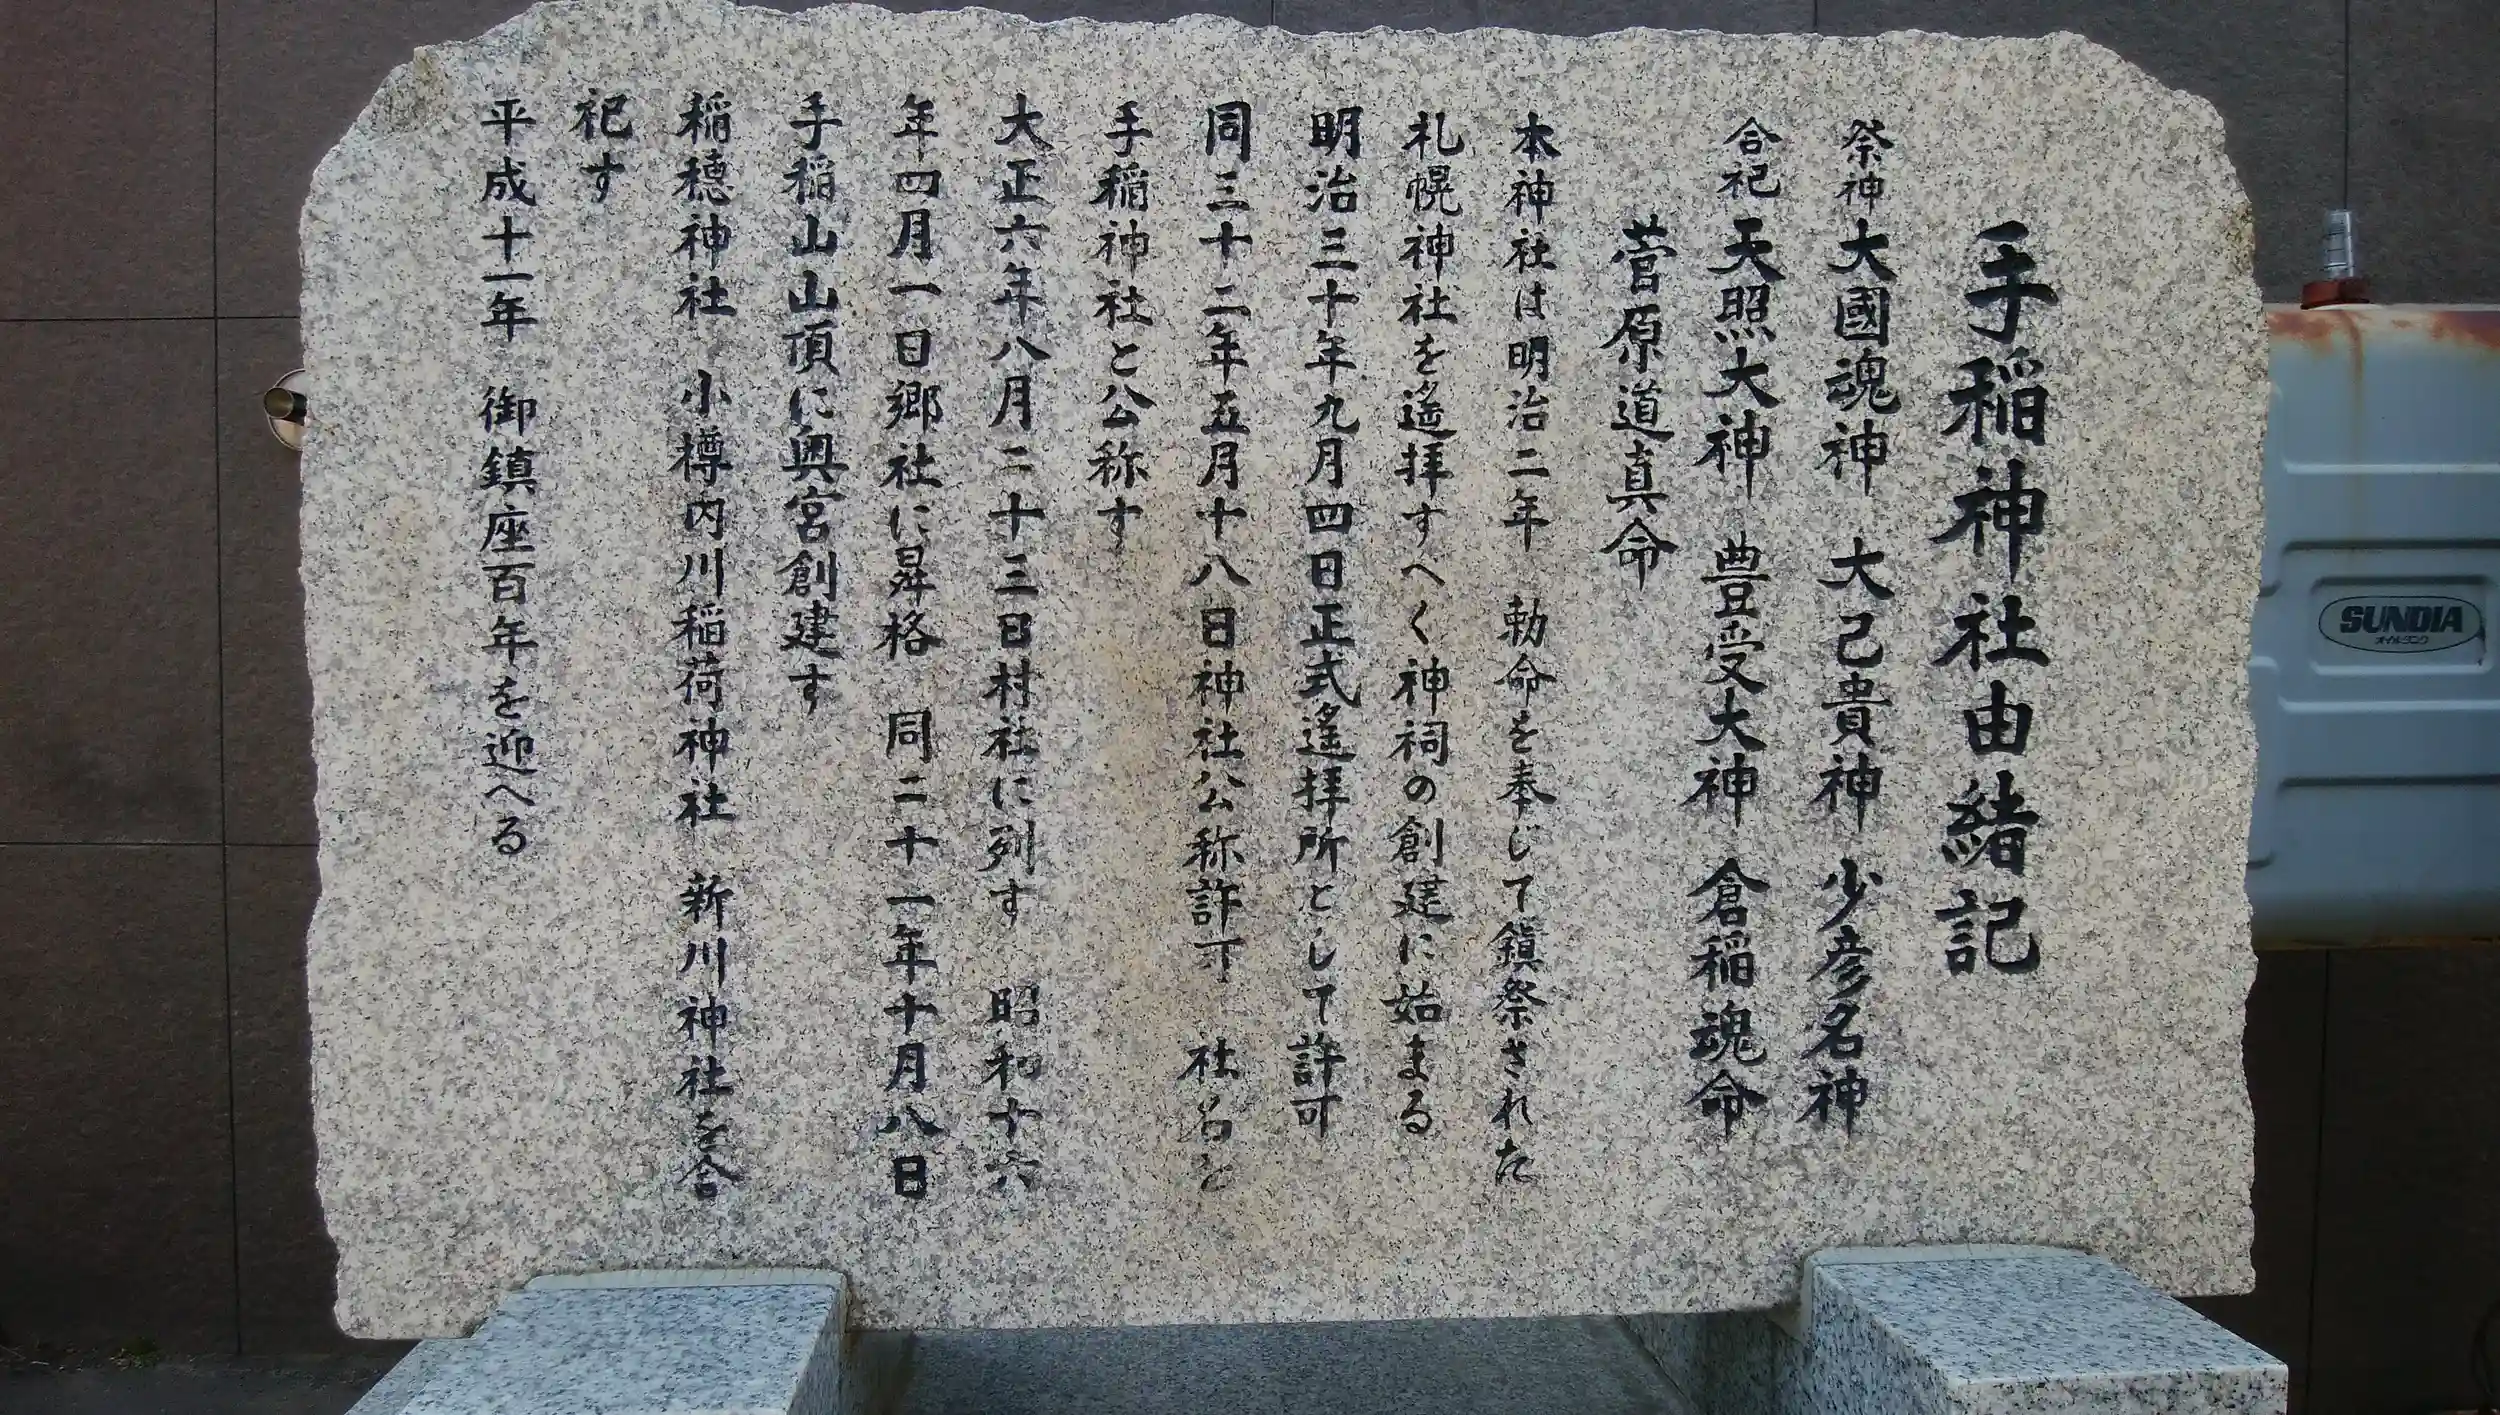 手稲神社由緒記
祭神 大國魂神 大己貴神 少彦名神
合祀 天照大神 豊受大神 倉稲魂命
菅原道真命
本神社は明治二年 勅命を奉じて鎮祭された
札幌神社を遙拝すへく神祠の創建に始まる
明治三十年九月四日正式遙拝所として許可
同三十二年五月十八日神社公称許可 社名を
手稲神社と公称す
大正六年八月二十三日村社に列す 昭和十六
年四月一日郷社に昇格 同二十一年十月八日
手稲山山頂に奥宮創建す
稲穂神社 小樽内川稲荷神社 新川神社を合
祀す
平成十一年 御鎮座百年を迎へる
SUNDIA
オイルタンク